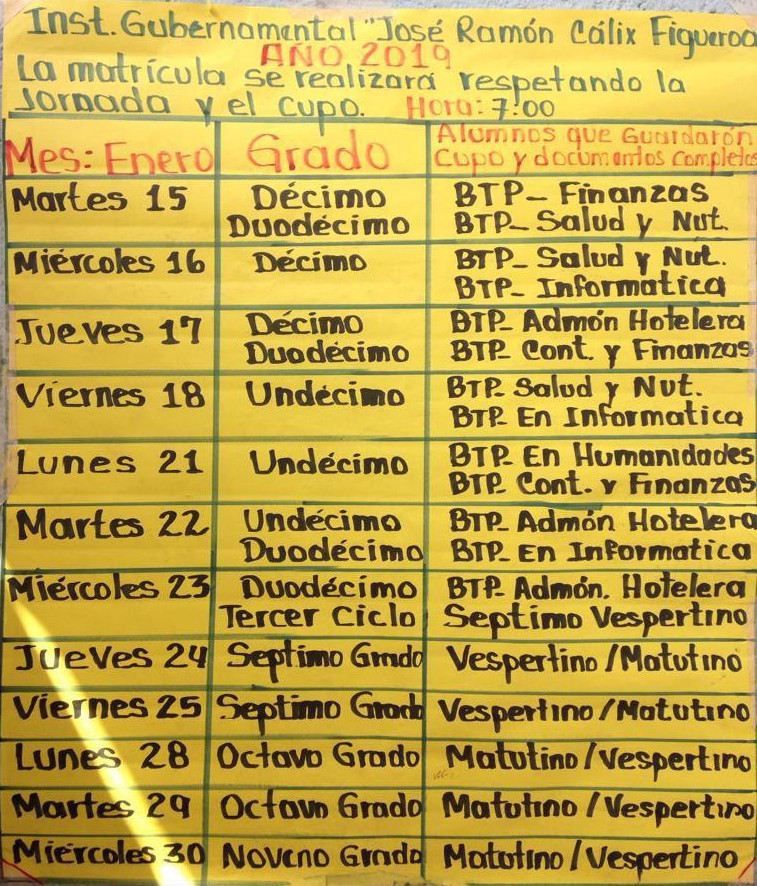 Inst. Gubernamental "José Ramón Cálix Figueroa
AÑO 2019
La matrícula se realizará respetando la
Jornada y el cupo. Hora: 7:00
Mes: Enero Grado Alumnos que Guardarón
Cupo y documentos completos
Martes 15 Décimo BTP- Finanzas
Duodécimo BTP- Salud y Nut.
Miércoles 16 Décimo BTP- Salud y Nut.
BTP- Informatica
Jueves 17 Décimo BTP- Admón Hotelera
Duodécimo BTP- Cont. y Finanzas
Viernes 18 Undécimo BTP- Salud y Nut.
BTP- En Informatica
Lunes 21 Undécimo BTP- En Humanidades
BTP- Cont. y Finanzas
Martes 22 Undécimo BTP- Admón Hotelera
Duodécimo BTP- En Informatica
Miércoles 23 Duodécimo BTP- Admón. Hotelera
Tercer Ciclo Septimo Vespertino
Jueves 24 Septimo Grado Vespertino / Matutino
Viernes 25 Septimo Grado Vespertino / Matutino
Lunes 28 Octavo Grado Matutino / Vespertino
Martes 29 Octavo Grado Matutino / Vespertino
Miércoles 30 Noveno Grado Matutino / Vespertino